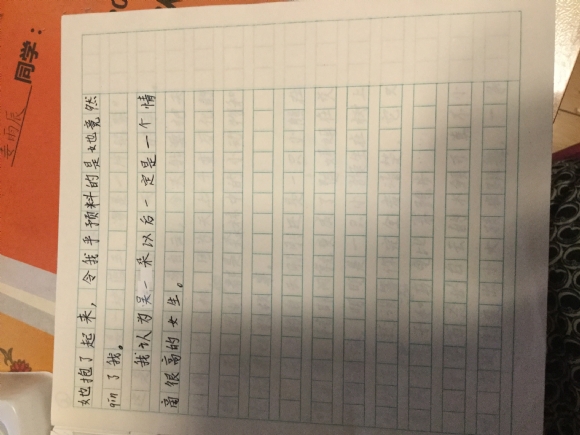 同学：
她抱了起来，令我乎预料的是她竟然
qin了我。
我认为吴一采以后一定是一个情
商很高的女生。